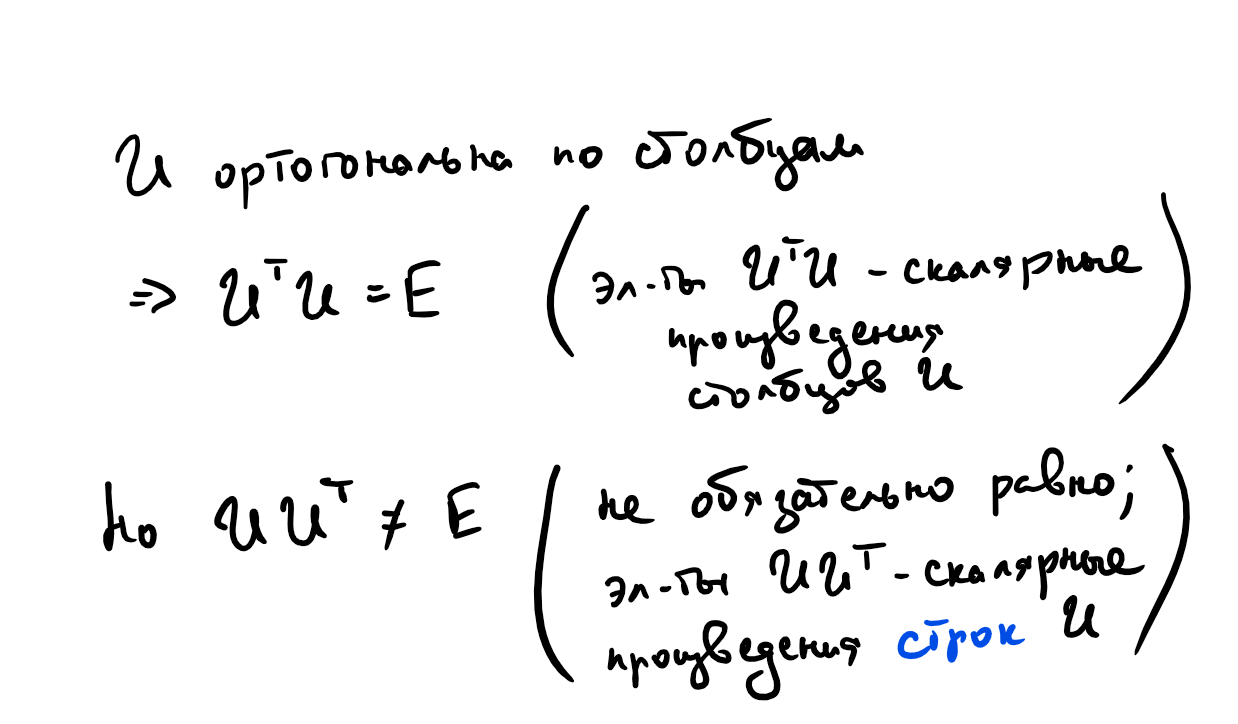 U ортогональна по столбцам
⇒ UᵀU = E (эл-ты UᵀU - скалярные
произведения
столбцов U)
Но UUᵀ ≠ E (не обязательно равно;
эл-ты UUᵀ - скалярные
произведения строк U)